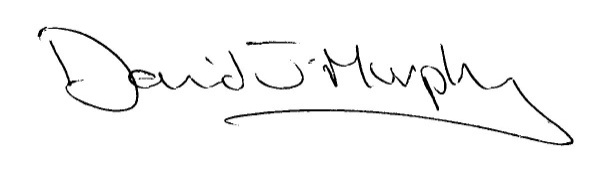 David J Murphy